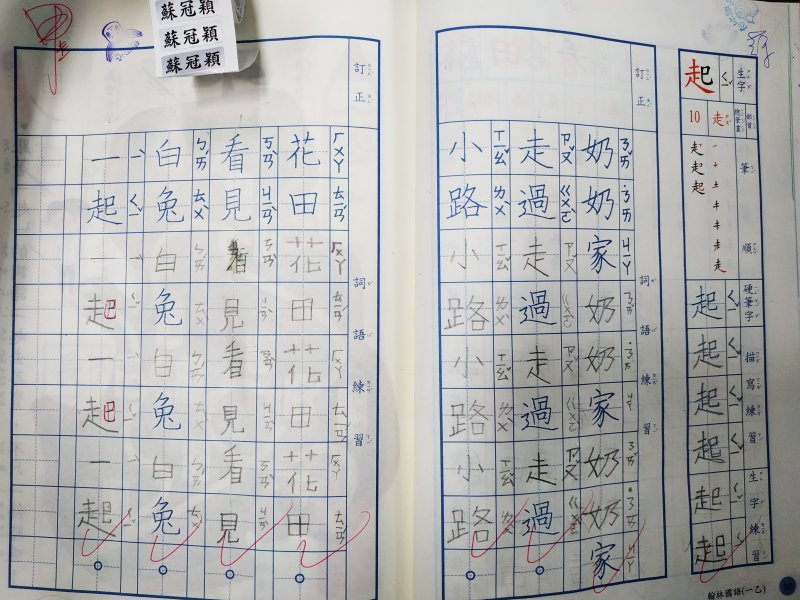 蘇冠穎
蘇冠穎
蘇冠穎
生字
部首
總筆畫
筆順
硬筆字描寫練習
生字練習
起 ㄑㄧˇ
走
10
起起起
起起起起起起
訂正
詞語練習
奶奶家奶奶家奶奶家
ㄋㄞˇ ˙ㄋㄞ ㄐㄧㄚ
走過走過走過走過
ㄗㄡˇ ㄍㄨㄛˋ
小路小路小路小路
ㄒㄧㄠˇ ㄌㄨˋ
訂正
詞語練習
花田花田花田花田
ㄏㄨㄚ ㄊㄧㄢˊ
看見看見看見看見
ㄎㄢˋ ㄐㄧㄢˋ
白兔白兔白兔白兔
ㄅㄞˊ ㄊㄨˋ
一起一起一起一起
ㄧˋ ㄑㄧˇ
翰林國語(一乙)